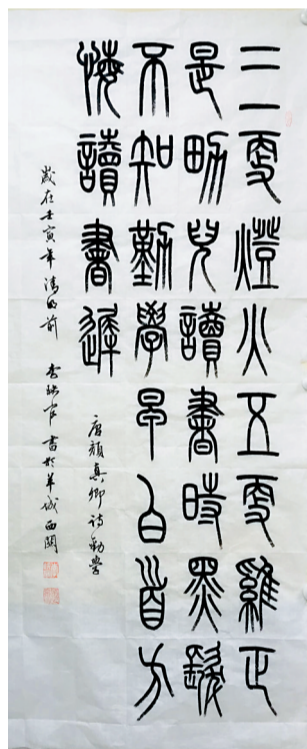 三更燈火五更雞正
是男兒讀書時黑髮
不知勤學早白首方
悔讀書遲
唐顏真卿詩勸學
歲在壬寅年清明前 書於羊城西關